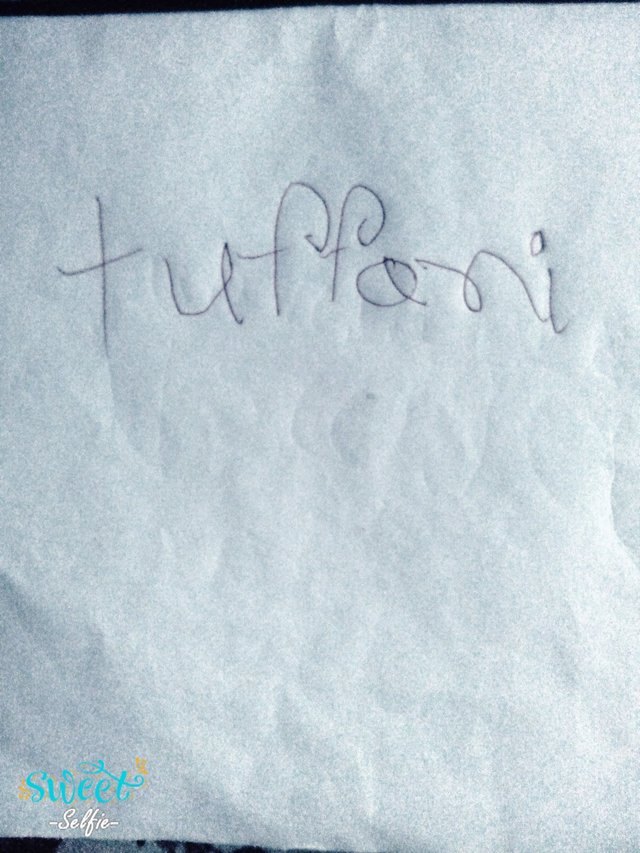 tuffani
sweet
-Selfie-